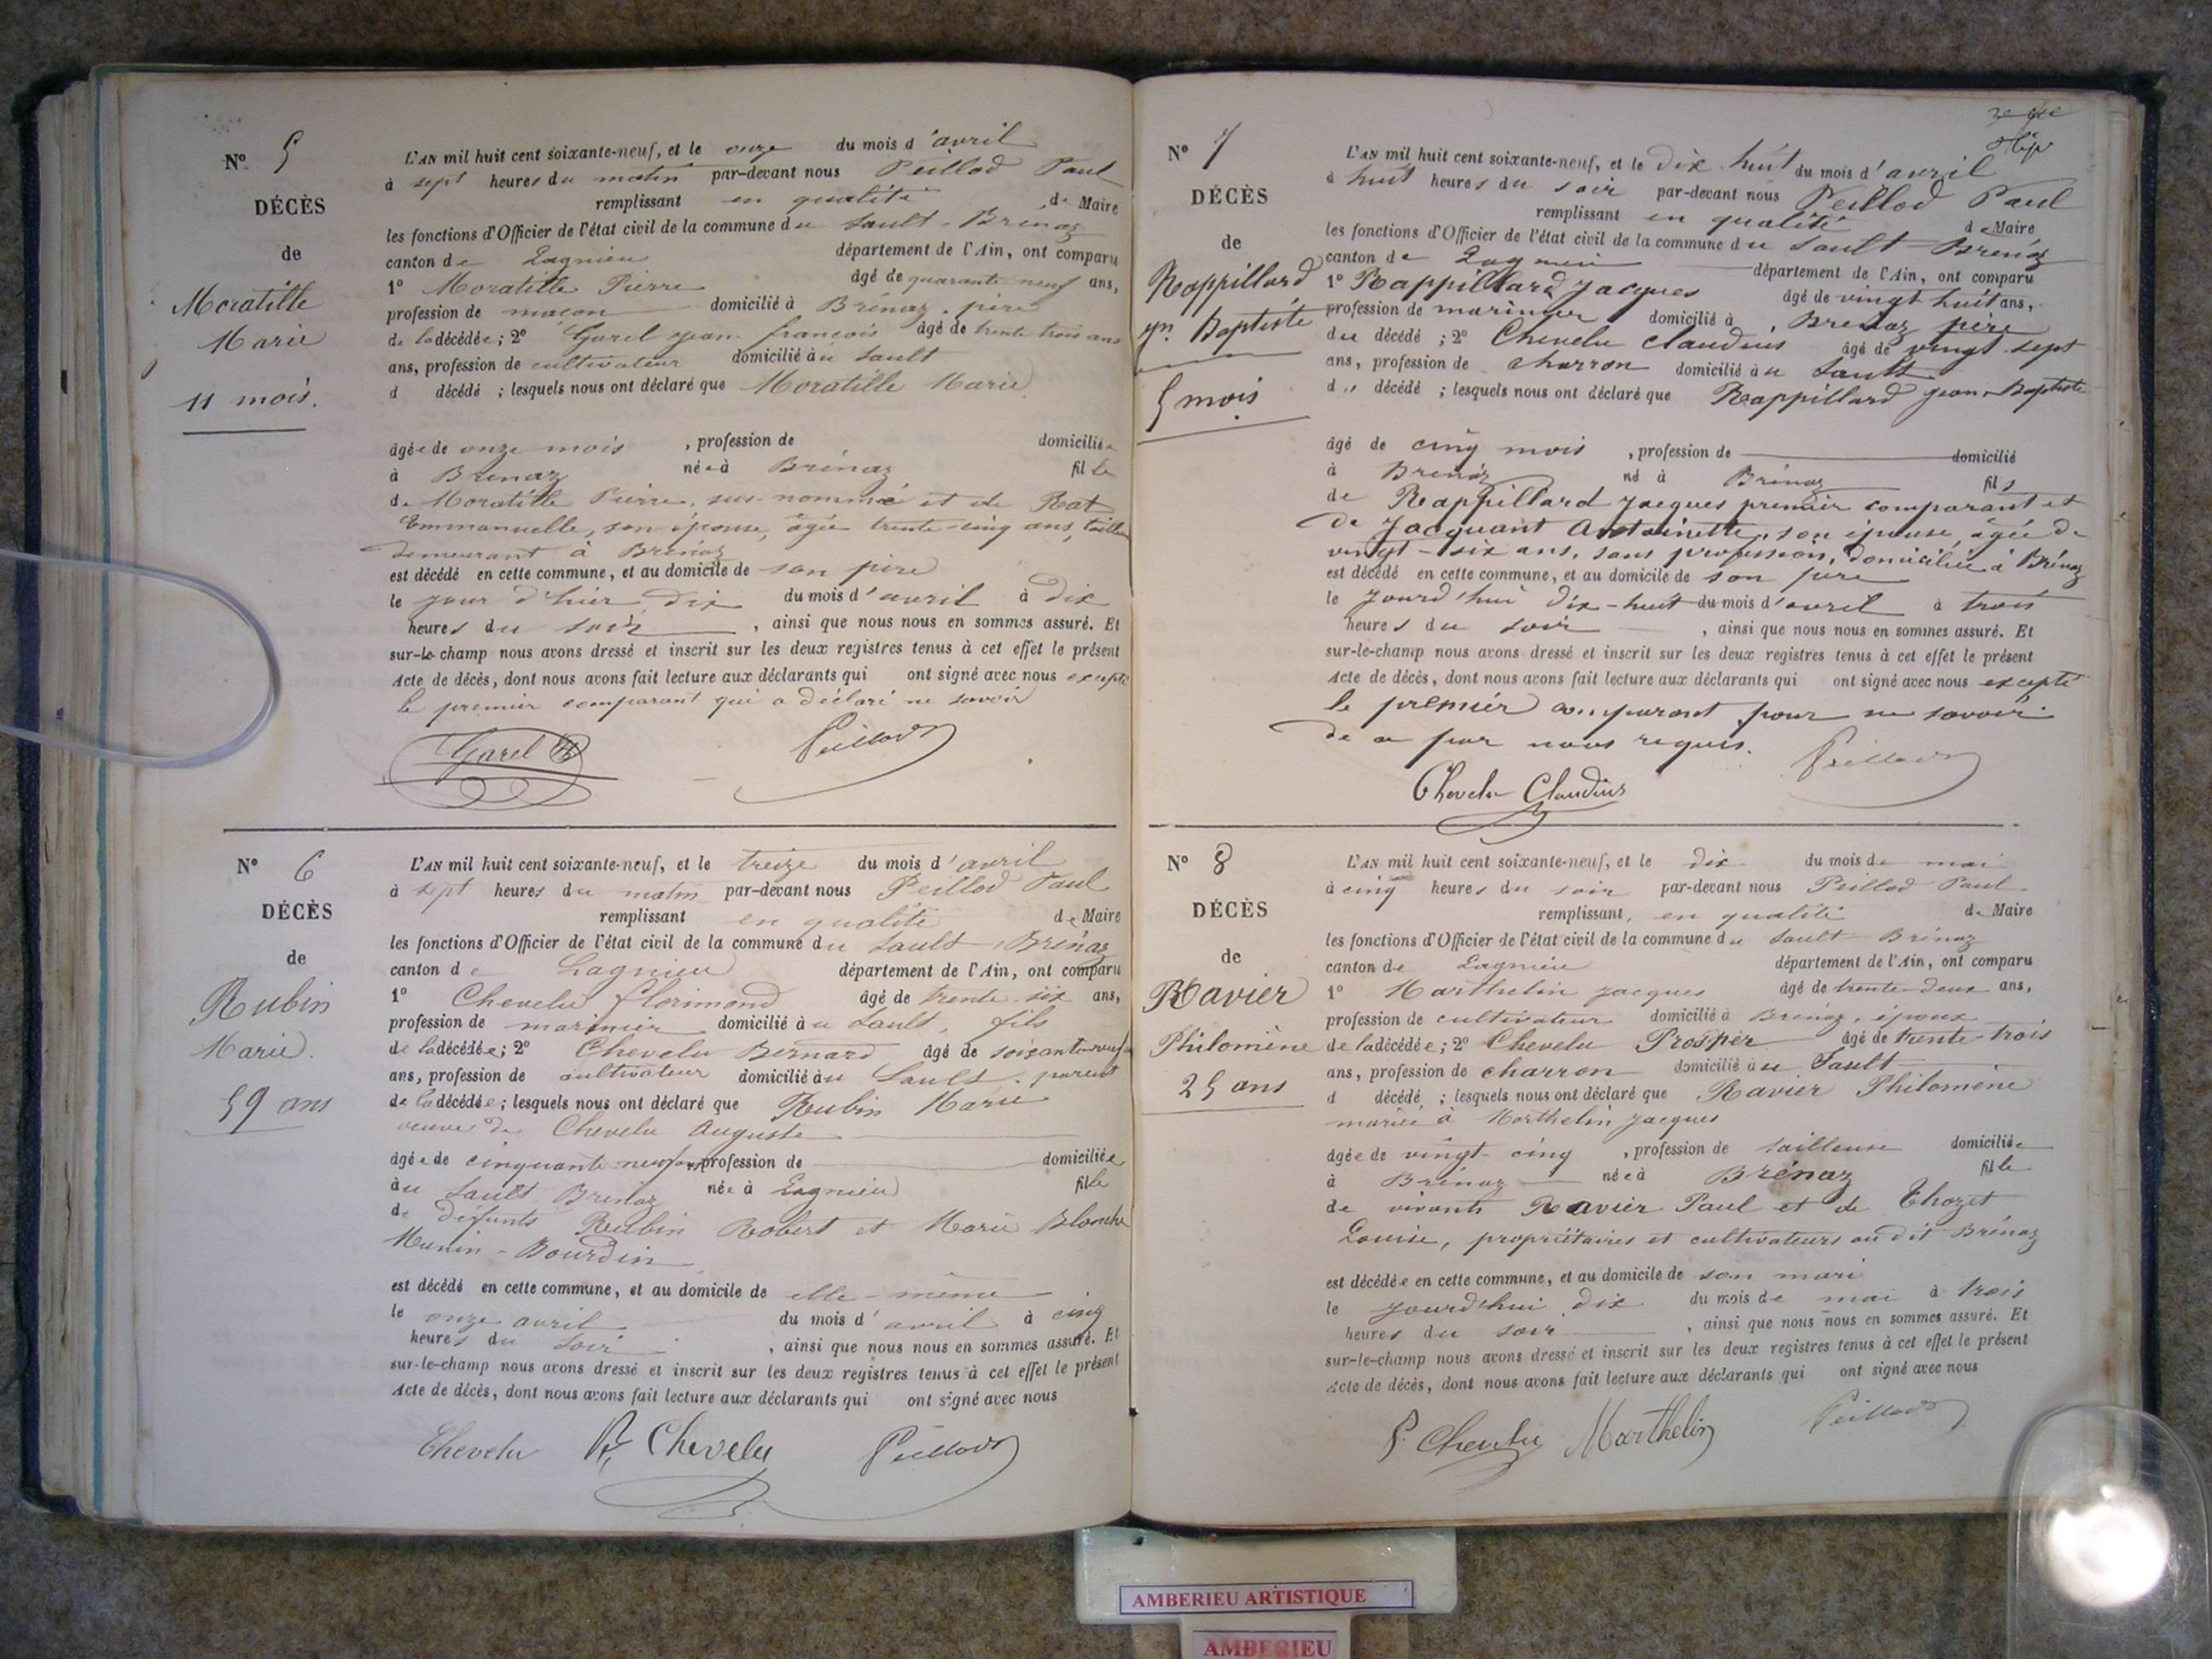 N° 5
DÉCÈS
de
Moratille
Marie
11 mois.
L'AN mil huit cent soixante-neuf, et le onze du mois d'avril
à sept heures du matin par-devant nous Peillod Paul
remplissant en qualité de Maire
les fonctions d'Officier de l'état civil de la commune du Sault-Brénaz
canton de Lagnieu département de l'Ain, ont comparu
1° Moratille Pierre âgé de quarante neuf ans,
profession de maçon domicilié à Brénaz, père
de la décédée; 2° Garel jean-françois âgé de trente trois ans
ans, profession de cultivateur domicilié au Sault
d décédé ; lesquels nous ont déclaré que Moratille Marie
âgée de onze mois , profession de domiciliée
à Brénaz née à Brénaz fille
de Moratille Pierre, sus-nommé et de Rat
Emmanuelle, son épouse, âgée trente-cinq ans,
demeurant à Brénaz
est décédé en cette commune, et au domicile de son père
le jour d'hier dix du mois d'avril à dix
heures du soir , ainsi que nous nous en sommes assuré. Et
sur-le-champ nous avons dressé et inscrit sur les deux registres tenus à cet effet le présent
Acte de décès, dont nous avons fait lecture aux déclarants qui ont signé avec nous excepté
le premier comparant qui a déclaré ne savoir
Garel Peillod
N° 6
DÉCÈS
de
Rubin
Marie.
59 ans
L'AN mil huit cent soixante-neuf, et le treize du mois d'avril
à sept heures du matin par-devant nous Peillod Paul
remplissant en qualité de Maire
les fonctions d'Officier de l'état civil de la commune du Sault-Brénaz
canton de Lagnieu département de l'Ain, ont comparu
1° Chevelu florimond âgé de trente-six ans,
profession de marinier domicilié au Sault, fils
de la décédée; 2° Chevelu Bernard âgé de soixante-neuf
ans, profession de cultivateur domicilié au Sault, parent
de la décédée; lesquels nous ont déclaré que Rubin Marie
veuve de Chevelu Auguste
âgée de cinquante-neuf ans, profession de domiciliée
au Sault-Brénaz née à Lagnieu fille
de défunts Rubin Robert et Marie Blanche
Munin-Bourdin
est décédé en cette commune, et au domicile de elle-même
le onze avril du mois d'avril à cinq
heures du soir , ainsi que nous nous en sommes assuré. Et
sur-le-champ nous avons dressé et inscrit sur les deux registres tenus à cet effet le présent
Acte de décès, dont nous avons fait lecture aux déclarants qui ont signé avec nous
Chevelu Chevelu Peillod
N° 7
DÉCÈS
de
Rappillard
jn. Baptiste
5 mois
L'AN mil huit cent soixante-neuf, et le dix-huit du mois d'avril
à huit heures du soir par-devant nous Peillod Paul
remplissant en qualité de Maire
les fonctions d'Officier de l'état civil de la commune du Sault-Brénaz
canton de Lagnieu département de l'Ain, ont comparu
1° Rappillard Jacques âgé de vingt huit ans,
profession de marinier domicilié à Brénaz père
du décédé ; 2° Chevelu Claudius âgé de vingt-sept
ans, profession de charron domicilié au Sault
d décédé ; lesquels nous ont déclaré que Rappillard Jean-Baptiste
âgé de cinq mois , profession de domicilié
à Brénaz né à Brénaz fils
de Rappillard Jacques premier comparant et
de Jacquant Antoinette, son épouse, âgée de
vingt-six ans, sans profession, domiciliée à Brénaz
est décédé en cette commune, et au domicile de son père
le jourd'hui dix-huit du mois d'avril à trois
heures du soir , ainsi que nous nous en sommes assuré. Et
sur-le-champ nous avons dressé et inscrit sur les deux registres tenus à cet effet le présent
Acte de décès, dont nous avons fait lecture aux déclarants qui ont signé avec nous excepté
le premier comparant pour ne savoir
de ce par nous requis.
Chevelu Claudius Peillod
N° 8
DÉCÈS
de
Ravier
Philomène
25 ans
L'AN mil huit cent soixante-neuf, et le dix du mois de mai
à cinq heures du soir par-devant nous Peillod Paul
remplissant, en qualité de Maire
les fonctions d'Officier de l'état civil de la commune du Sault-Brénaz
canton de Lagnieu département de l'Ain, ont comparu
1° Marthelin jacques âgé de trente-deux ans,
profession de cultivateur domicilié à Brénaz, époux
de la décédée; 2° Chevelu Prosper âgé de trente-trois
ans, profession de charron domicilié au Sault
d décédé ; lesquels nous ont déclaré que Ravier Philomène
mariée à Marthelin jacques
âgée de vingt-cinq , profession de tailleuse domiciliée
à Brénaz née à Brénaz fille
de vivants Ravier Paul et de Thozet
Louise, propriétaires et cultivateurs au dit Brénaz
est décédée en cette commune, et au domicile de son mari
le jourd'hui dix du mois de mai à trois
heures du soir , ainsi que nous nous en sommes assuré. Et
sur-le-champ nous avons dressé et inscrit sur les deux registres tenus à cet effet le présent
Acte de décès, dont nous avons fait lecture aux déclarants qui ont signé avec nous
P. Chevelu Marthelin Peillod
AMBERIEU ARTISTIQUE
AMBERIEU